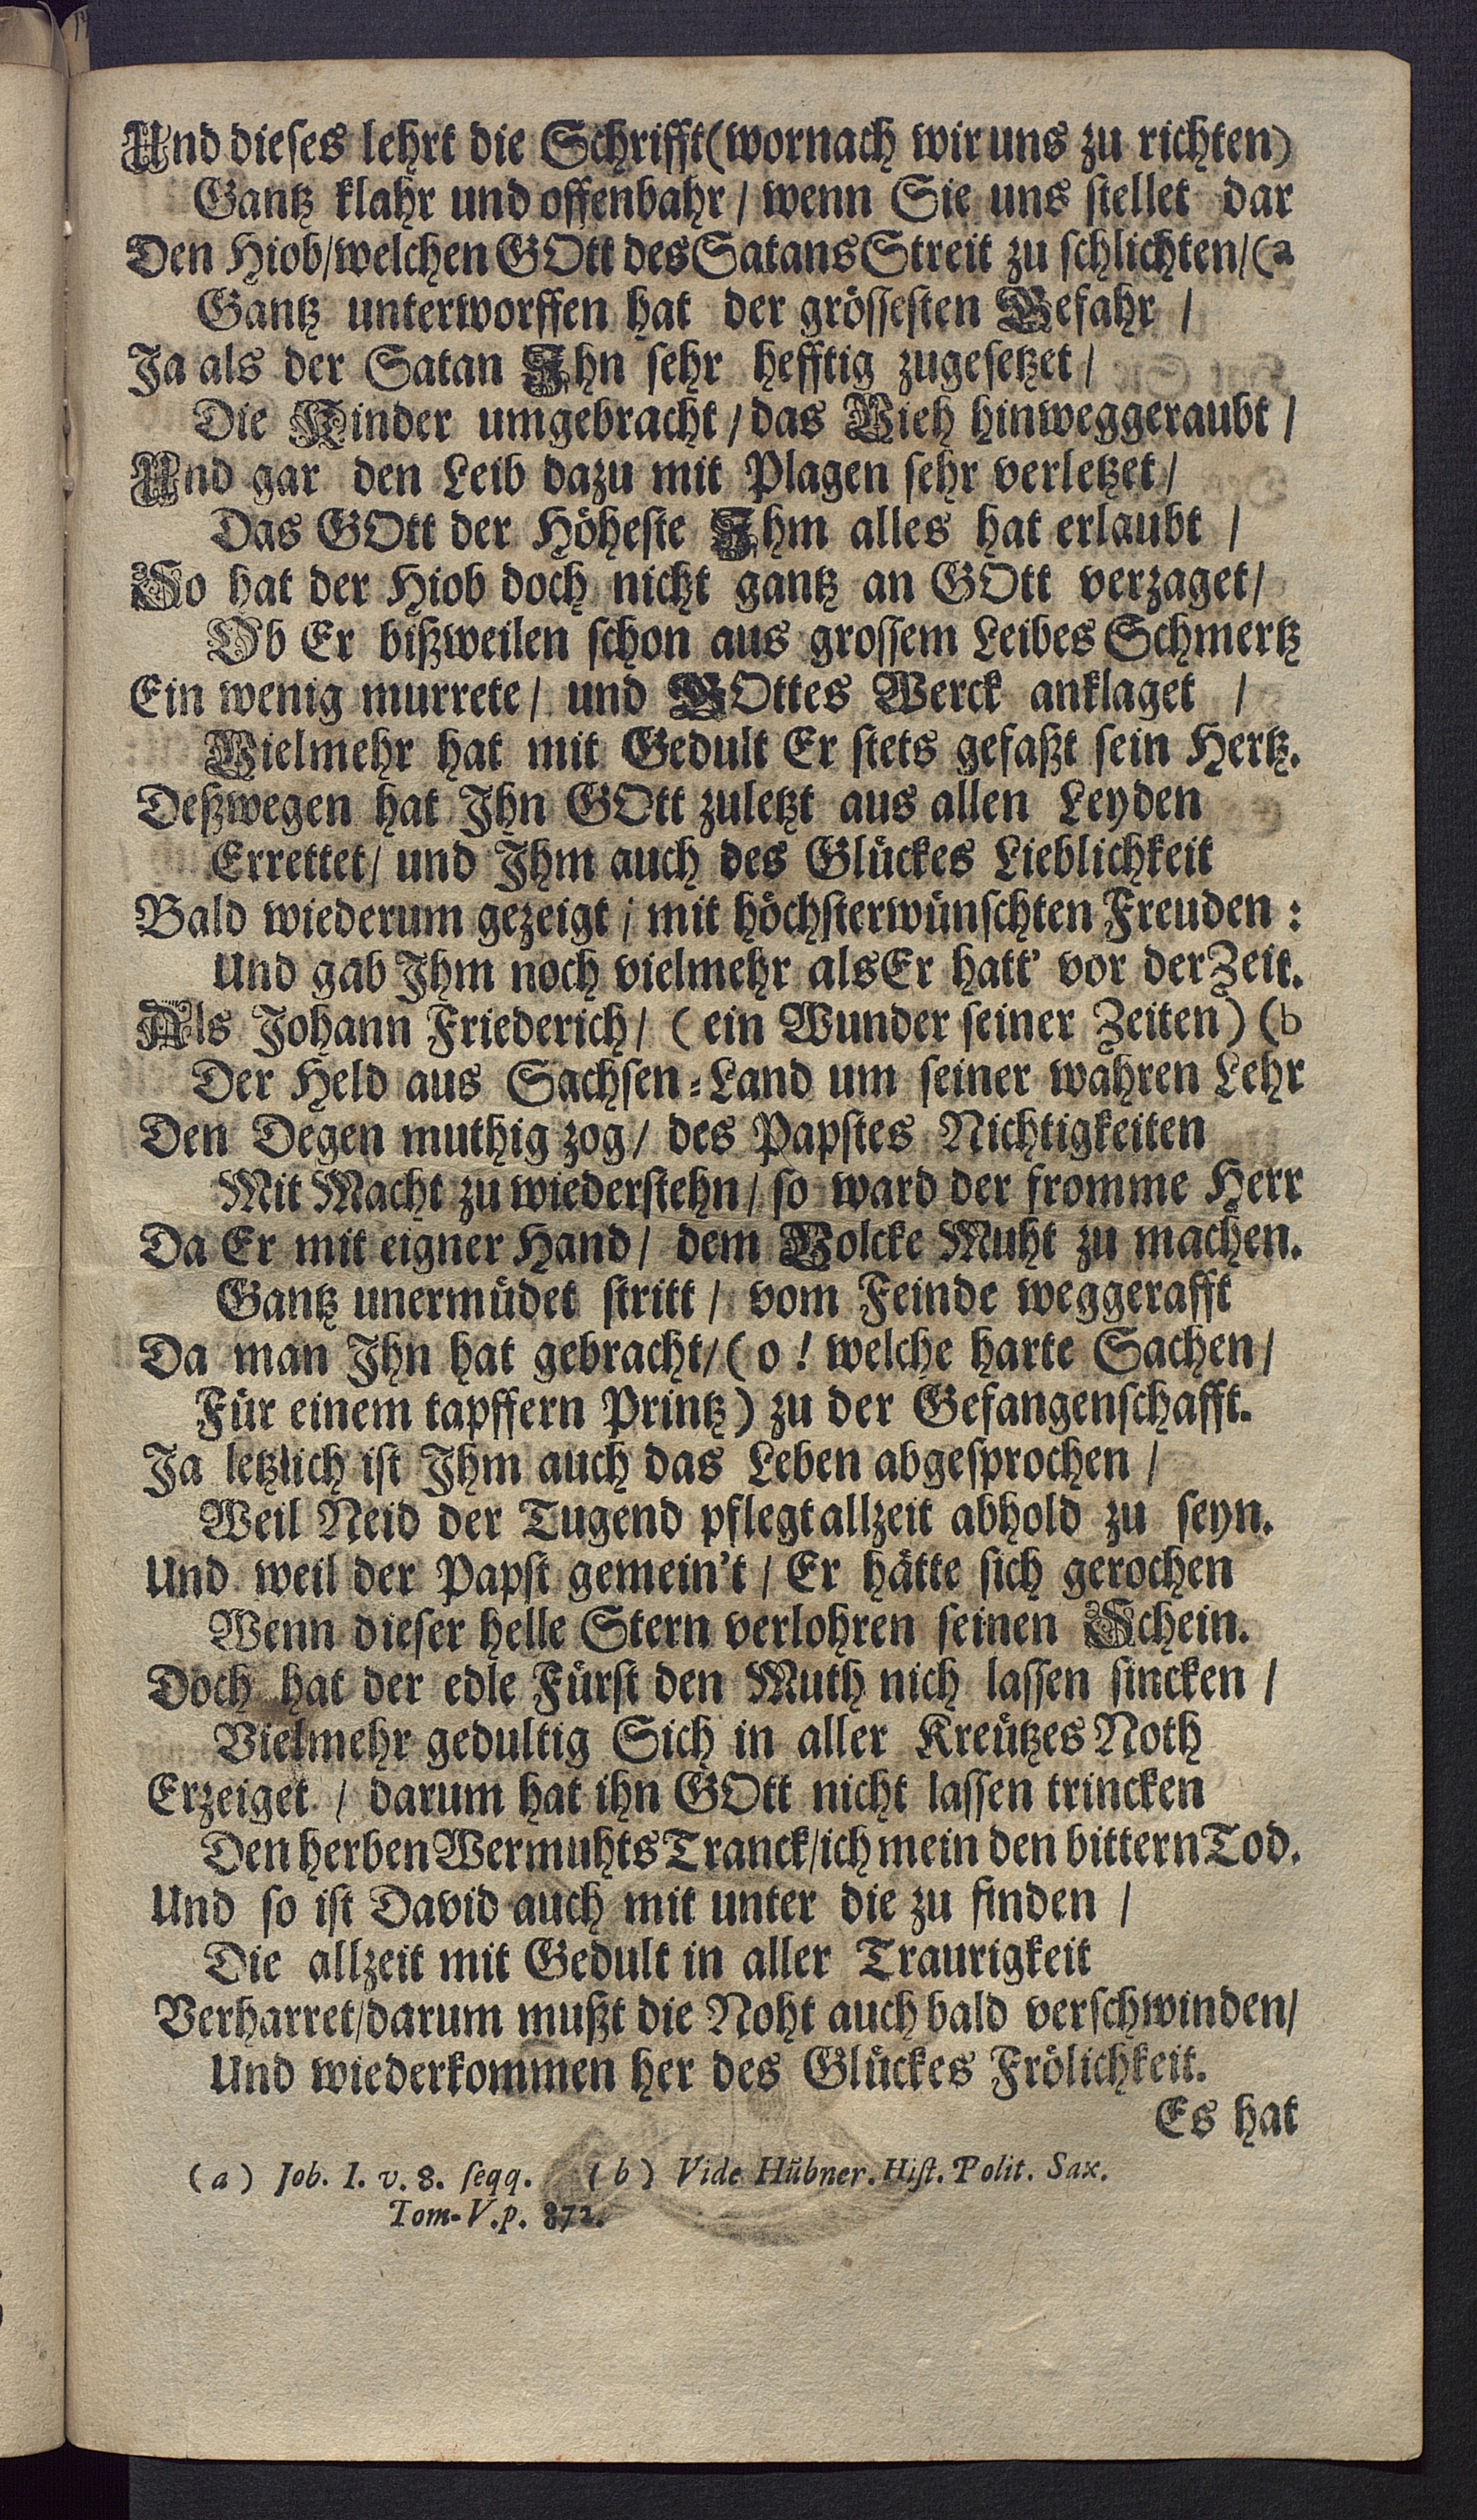 Und dieſes lehrt die Schrifft (wornach wir uns zu richten)
Gantz klahr und offenbahr / wenn Sie uns ſtellet dar
Den Hiob/welchen GOtt des Satans Streit zu ſchlichten/(a
Gantz unterworffen hat der gröſſeſten Gefahr /
Ja als der Satan Ihn ſehr hefftig zugeſetzet /
Die Kinder umgebracht / das Vieh hinweggeraubt /
Und gar den Leib dazu mit Plagen ſehr verletzet /
Das GOtt der Höheſte Ihm alles hat erlaubt /
So hat der Hiob doch nicht gantz an GOtt verzaget/
Ob Er bißweilen ſchon aus groſſem Leibes Schmertz
Ein wenig murrete / und GOttes Werck anklaget /
Vielmehr hat mit Gedult Er ſtets gefaßt ſein Hertz.
Deßwegen hat Ihn GOtt zuletzt aus allen Leyden
Errettet/ und Ihm auch des Glückes Lieblichkeit
Bald wiederum gezeigt / mit höchſterwünſchten Freuden :
Und gab Ihm noch vielmehr als Er hatt' vor der Zeit.
Als Johann Friederich/ (ein Wunder ſeiner Zeiten) (b
Der Held aus Sachſen-Land um ſeiner wahren Lehr
Den Degen muthig zog/ des Papſtes Nichtigkeiten
Mit Macht zu wiederſtehn / ſo ward der fromme Herr
Da Er mit eigner Hand / dem Volcke Muht zu machen.
Gantz unermüdet ſtritt / vom Feinde weggerafft
Da man Ihn hat gebracht/(o! welche harte Sachen/
Für einem tapffern Printz) zu der Gefangenſchafft.
Ja letzlich iſt Ihm auch das Leben abgeſprochen /
Weil Neid der Tugend pflegt allzeit abhold zu ſeyn.
Und weil der Papſt gemein't / Er hätte ſich gerochen
Wenn dieſer helle Stern verlohren ſeinen Schein.
Doch hat der edle Fürſt den Muth nich laſſen ſincken /
Vielmehr gedultig Sich in aller Kreützes Noth
Erzeiget / darum hat ihn GOtt nicht laſſen trincken
Den herben Wermuhts Tranck/ich mein den bittern Tod.
Und ſo iſt David auch mit unter die zu finden /
Die allzeit mit Gedult in aller Traurigkeit
Verharret/darum mußt die Noht auch bald verſchwinden/
Und wiederkommen her des Glückes Frölichkeit.
Es hat
(a) Job. I. v. 8. ſeqq. (b) Vide Hübner. Hiſt. Polit. Sax.
Tom-V.p. 872.